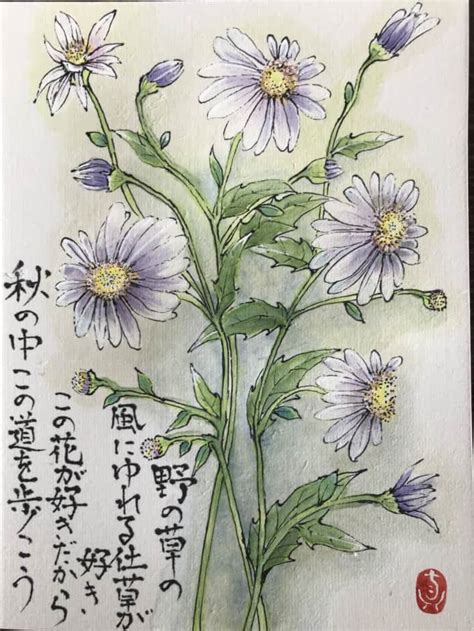 野の草の
風にゆれる仕草が
好き
この花が好きだから
秋の中この道を歩こう